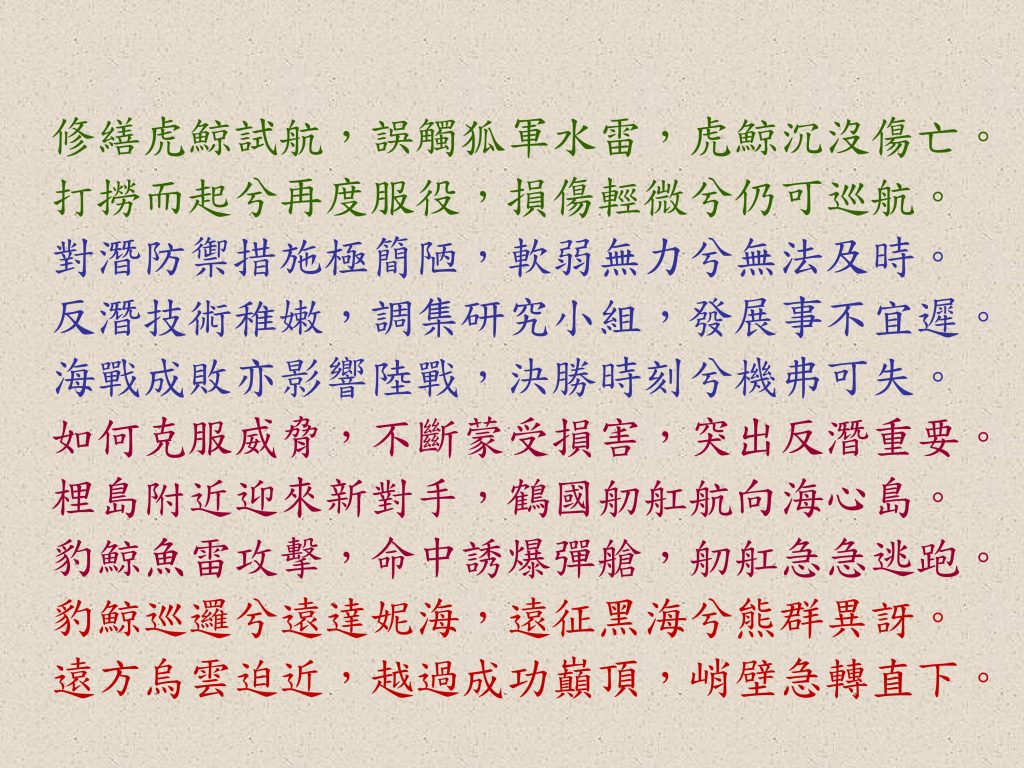 修繕虎鯨試航，誤觸狐軍水雷，虎鯨沉沒傷亡。
打撈而起兮再度服役，損傷輕微兮仍可巡航。
對潛防禦措施極簡陋，軟弱無力兮無法及時。
反潛技術稚嫩，調集研究小組，發展事不宜遲。
海戰成敗亦影響陸戰，決勝時刻兮機弗可失。
如何克服威脅，不斷蒙受損害，突出反潛重要。
梩島附近迎來新對手，鶴國舠舡航向海心島。
豹鯨魚雷攻擊，命中誘爆彈艙，舠舡急急逃跑。
豹鯨巡邏兮遠達妮海，遠征黑海兮熊群異訝。
遠方烏雲迫近，越過成功巔頂，峭壁急轉直下。